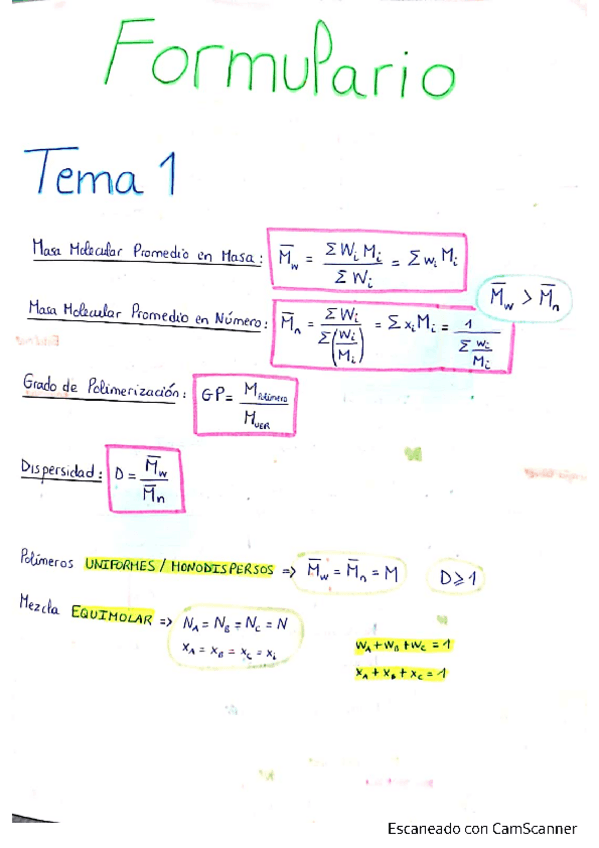 Formulario
Tema 1
Masa Molecular Promedio en Masa: M̅w = ΣWiMi / ΣWi = ΣwiMi
M̅w > M̅n
Masa Molecular Promedio en Número: M̅n = ΣWi / Σ(Wi/Mi) = ΣxiMi = 1 / Σ(wi/Mi)
Grado de Polimerización: GP = MPolímero / MUER
Dispersidad: D = M̅w / M̅n
Polímeros UNIFORMES / MONODISPERSOS => M̅w = M̅n = M D ≥ 1
Mezcla EQUIMOLAR => NA = NB = NC = N
xA = xB = xC = xi
wA + wB + wC = 1
xA + xB + xC = 1
Escaneado con CamScanner